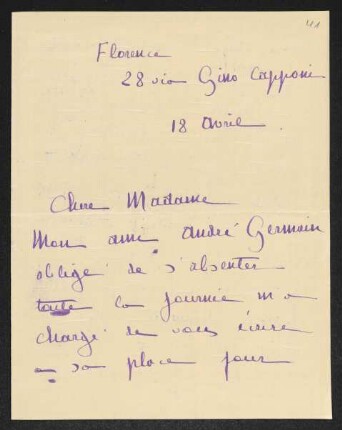 41
Florence
28 via Gino Capponi
18 Avril
Chere Madame
Mon ami André Germain
obligé de s'absenter
toute la journée m'a
chargé de vous écrire
a sa place pour